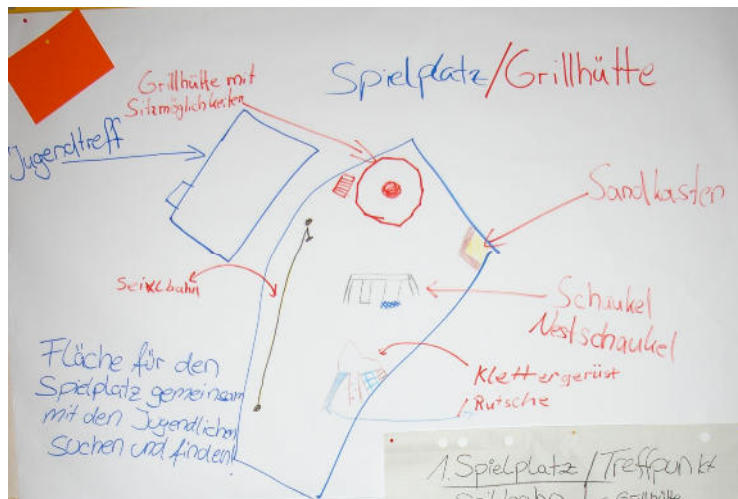 Spielplatz/Grillhütte
Grillhütte mit
Sitzmöglichkeiten
Jugendtreff
Sandkasten
Seilbahn
Schaukel
Nestschaukel
Klettergerüst
Rutsche
Fläche für den
Spielplatz gemeinsam
mit den Jugendlichen
suchen und finden!
1. Spielplatz / Treffpunkt
Seilbahn - Grillhütte